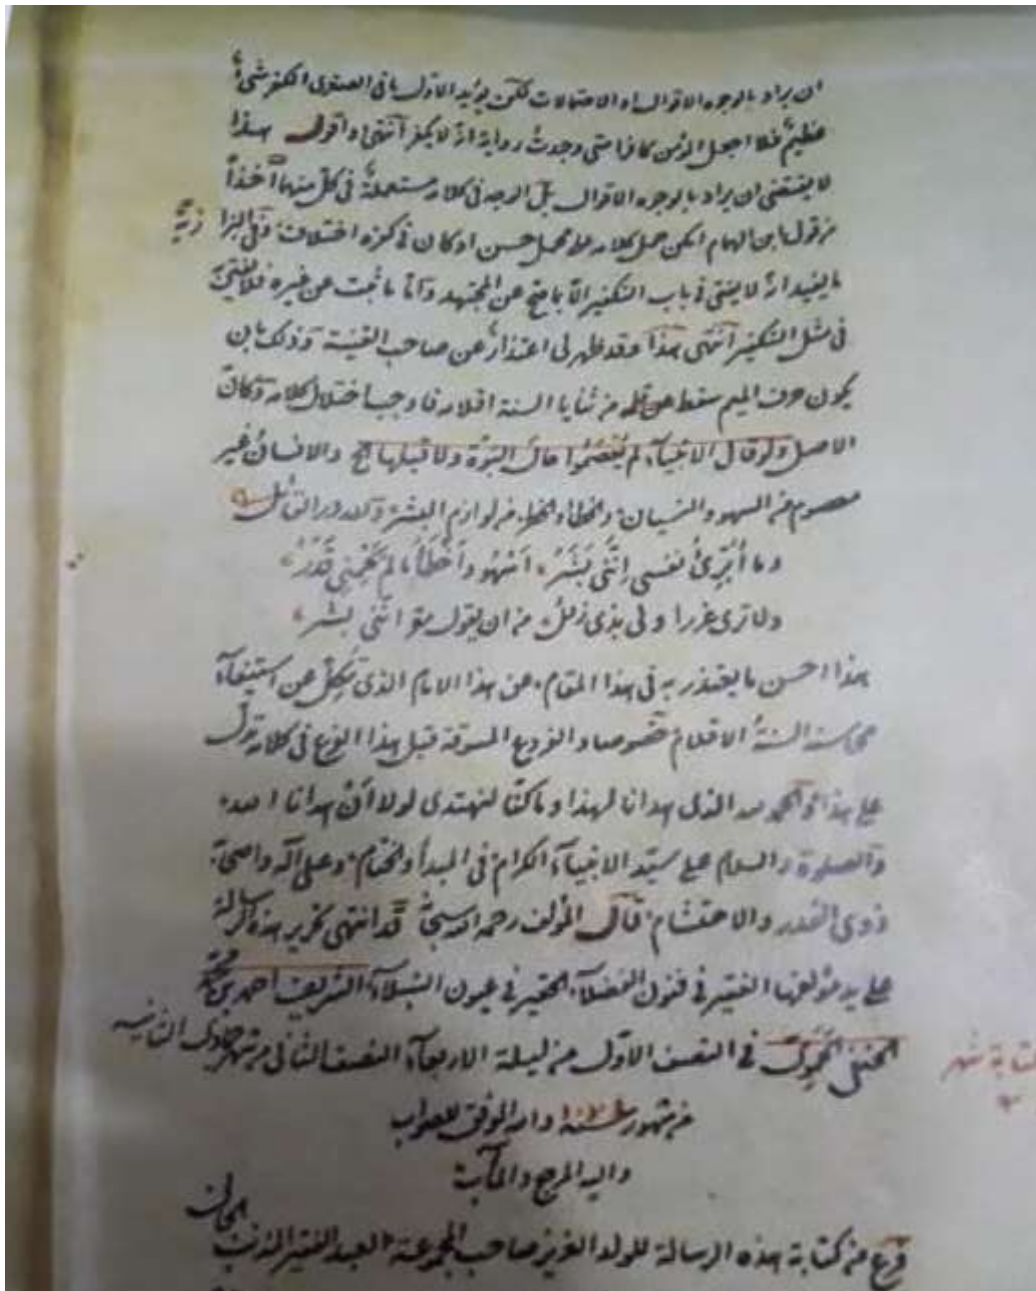 ان يراد بالوجوه الاقوال او الاحتمالات لكن يؤيد الاول ما في الصغرى الكفر شيء
عظيم فلا اجعل المؤمن كافرا متى وجدت رواية انه لا يكفر انتهى واقول هذا
لا يقتضي ان يراد بالوجوه الاقوال بل الوجه في كلامه مستعملة في كل منها اخذا
من قول ابن الهمام امكن حمل كلامه على محمل حسن او كان في كفره اختلاف وفي البزازية
ما يفيد انه لا يفتى في باب التكفير الا بما صح عن المجتهد واما ما ثبت عن غيره فلا يفتى
في مثل التكفير انتهى هذا وقد ظهر لي اعتذار عن صاحب القنية وذلك بان
يكون حرف الميم سقط من قلمه من ثنايا السنة اقلامه فاوجب اختلال كلامه وكان
الاصل ولو قال الانبياء لم يعصموا حال النبوة ولا قبلها الخ والانسان غير
معصوم من السهو والنسيان والخطأ والخطل من لوازم البشر ولله در القائل
وما أبرئ نفسي إنني بشر أسهو وأخطأ ما لم يحمني قدر
ولا ترى عذرا اولى بذي زلل من ان يقول مقرا انني بشر
هذا احسن ما يعتذر به في هذا المقام عن هذا الامام الذي تكل عن استيفاء
محاسنه السنة الاقلام خصوصا والفروع المسوقة قبل هذا الفرع في كلامه تدل
على هذا والحمد لله الذي هدانا لهذا وما كنا لنهتدي لولا أن هدانا الله
والصلوة والسلام على سيد الانبياء الكرام في المبدأ والختام وعلى آله واصحابه
ذوى القدر والاحتشام قال المؤلف رحمه الله سبحانه قد انتهى تحرير هذه الرسالة
على يد مؤلفها الفقير في فنون الفضلاء الحقير في عيون النبلاء الشريف احمد بن محمد
الحنفي الحموي في النصف الاول من ليلة الاربعاء النصف الثاني من شهر جمادى الثانية
كتابة شهر
من شهور سنة والله الموفق للصواب
واليه المرجع والمآب
فرغ من كتابة هذه الرسالة للولد العزيز صاحب المجموعة العبد الفقير المذنب الجاني